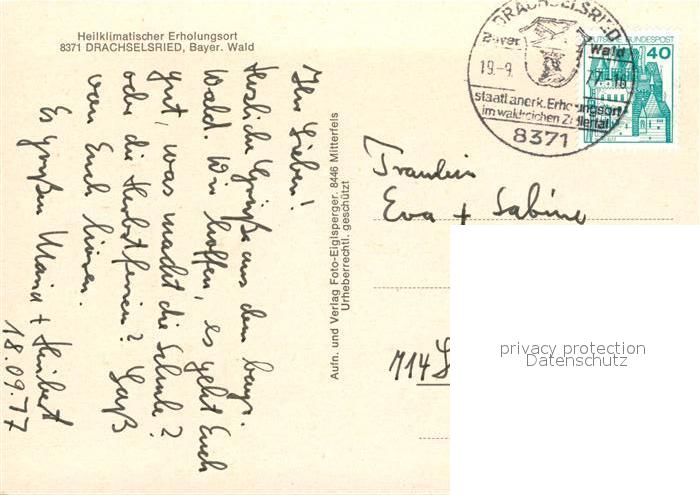 Heilklimatischer Erholungsort
8371 DRACHSELSRIED, Bayer. Wald
Ihr Lieben!
Herzliche Grüße aus dem bayr.
Wald. Wir hoffen, es geht Euch
gut, was macht die Schule?
oder die Herbstferien? Laßt
von Euch hören.
Es grüßen Maria + Herbert
18.09.77
Aufn. und Verlag Foto-Eiglsperger, 8446 Mitterfels
Urheberrechtl. geschützt
DRACHSELSRIED
Bayer Wald
19.-9. 77.-18
staatl anerk. Erholungsort
im waldreichen Zellertal
8371
DEUTSCHE BUNDESPOST
40
Fräulein
Eva + Sabine
714
privacy protection
Datenschutz